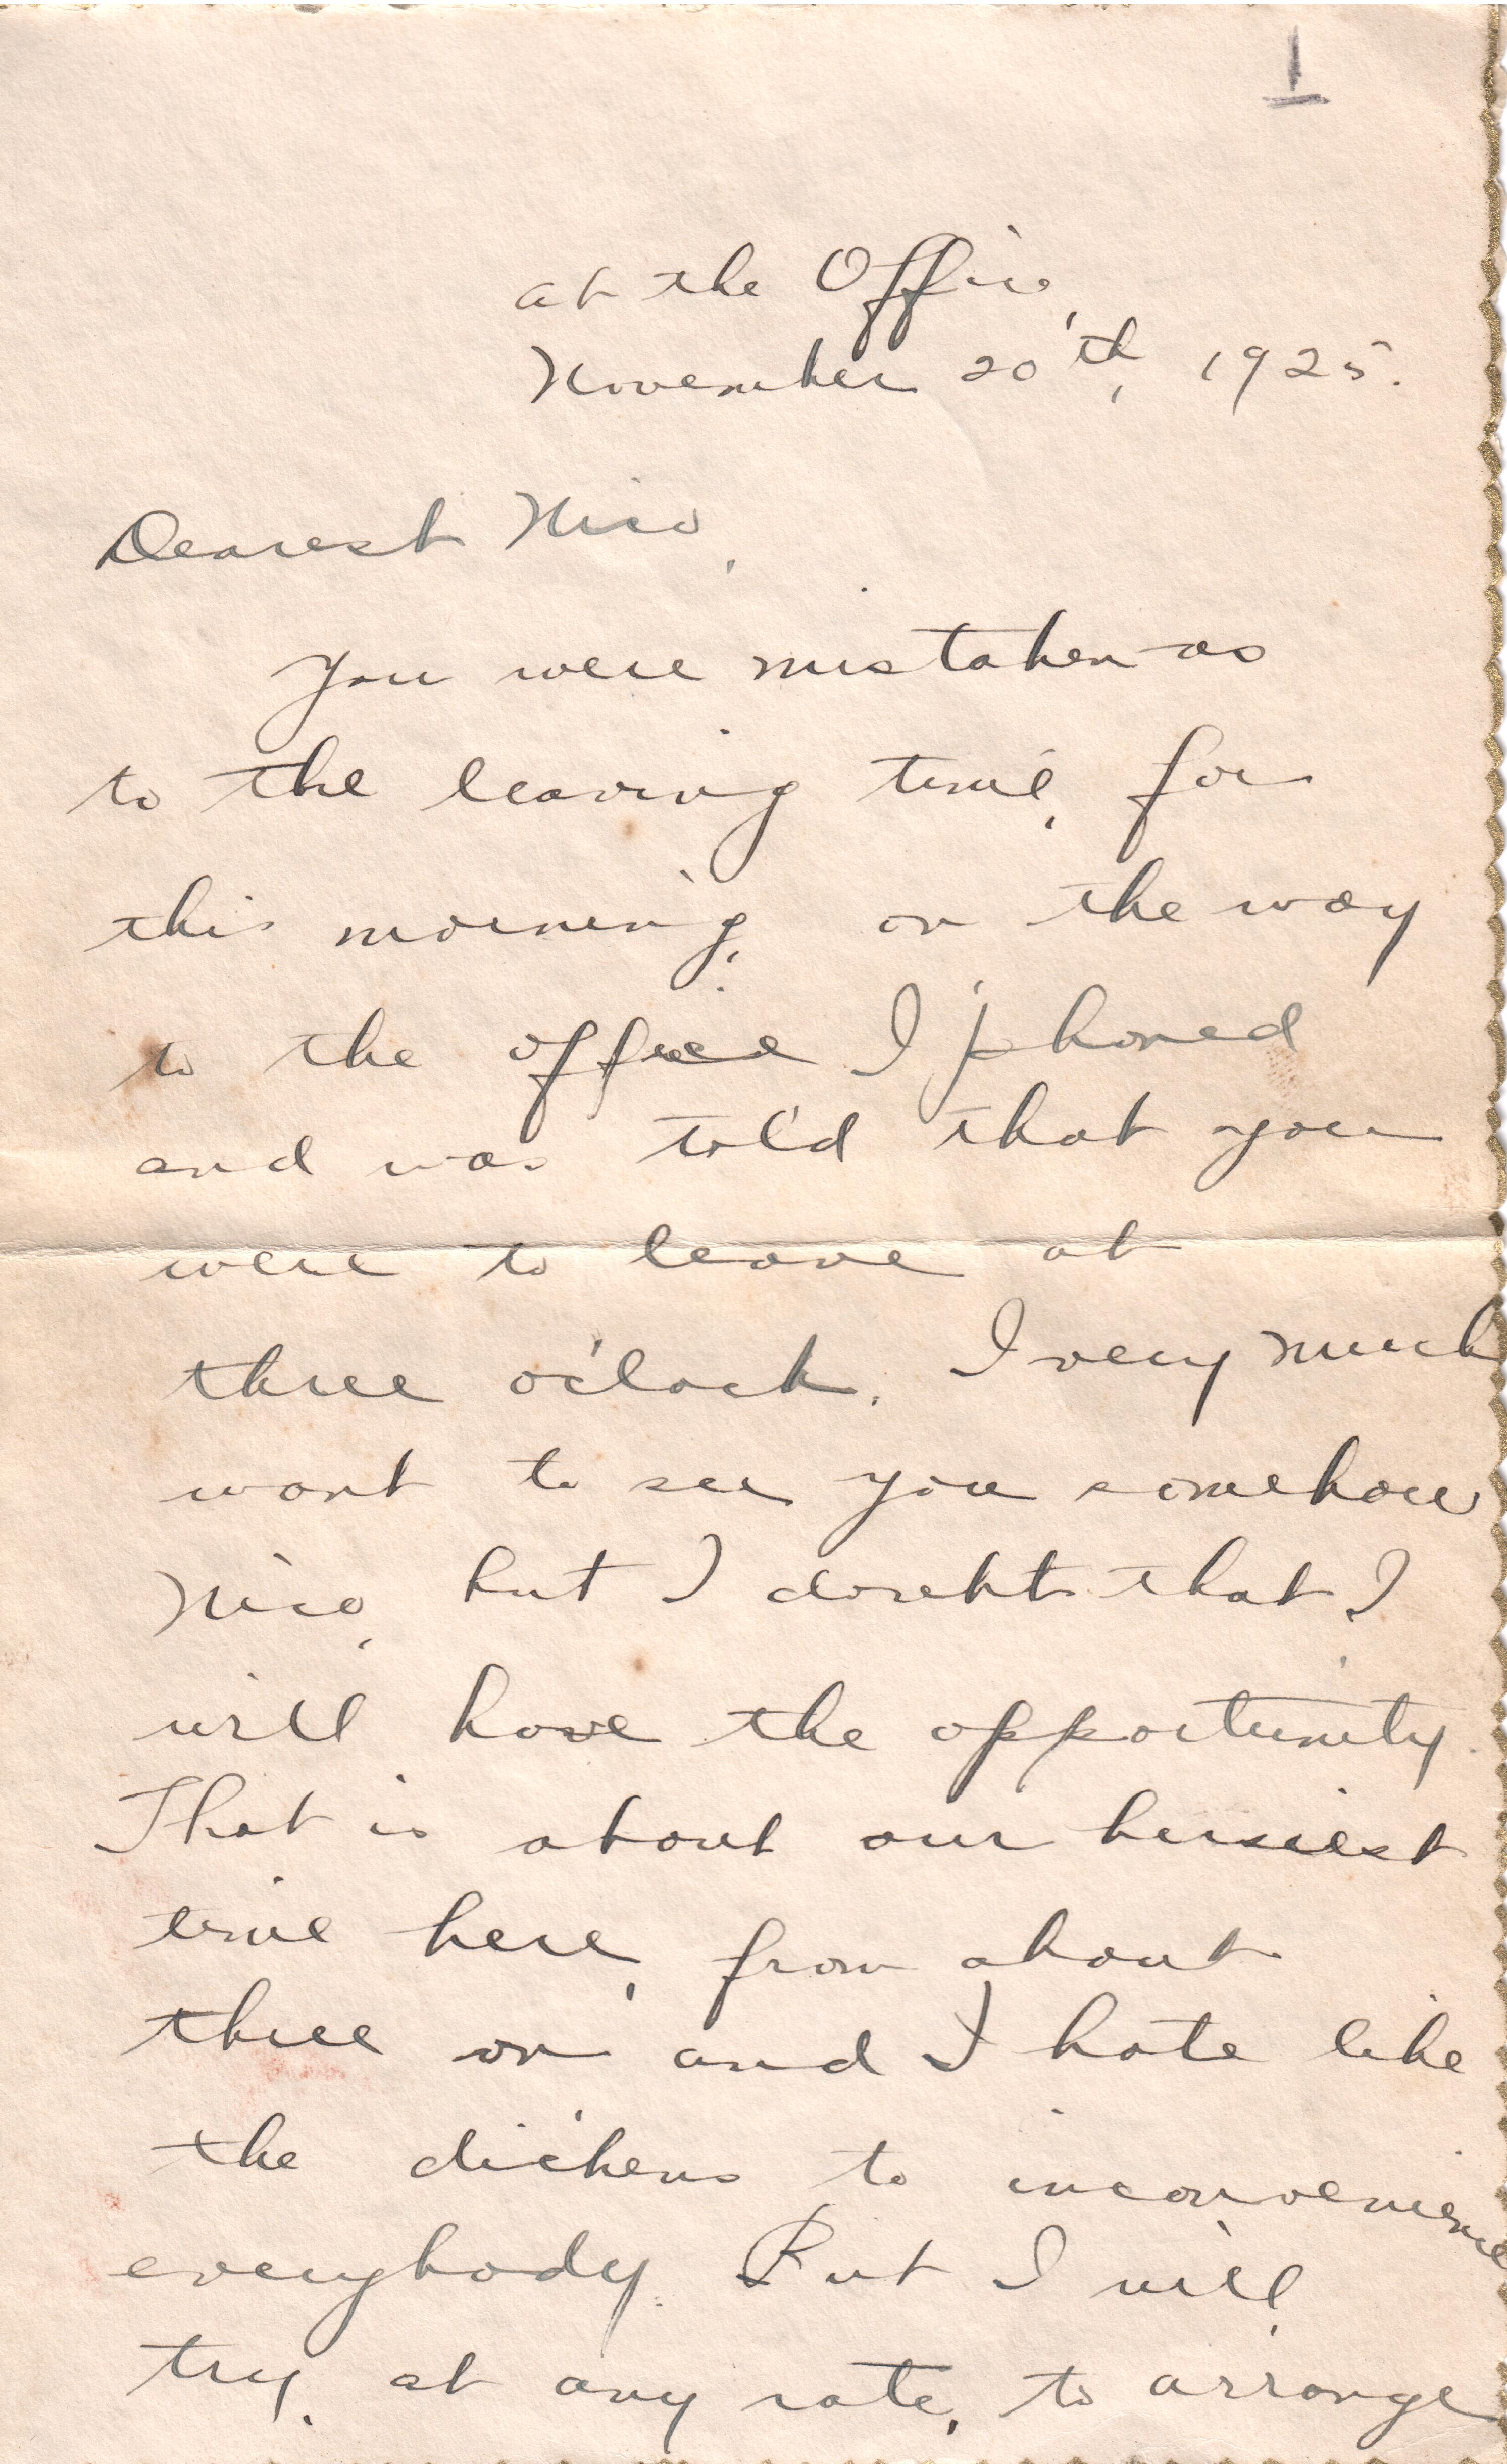 1
at the Office,
November 20th, 1925.
Dearest Nico,
You were mistaken as
to the leaving time, for
this morning, on the way
to the office I 'phoned
and was told that you
were to leave at
three o'clock. I very much
want to see you somehow
Nico, but I doubt that I
will have the opportunity.
That is about our busiest
time here, from about
three on and I hate like
the dickens to inconvenience
everybody. But I will,
try, at any rate, to arrange